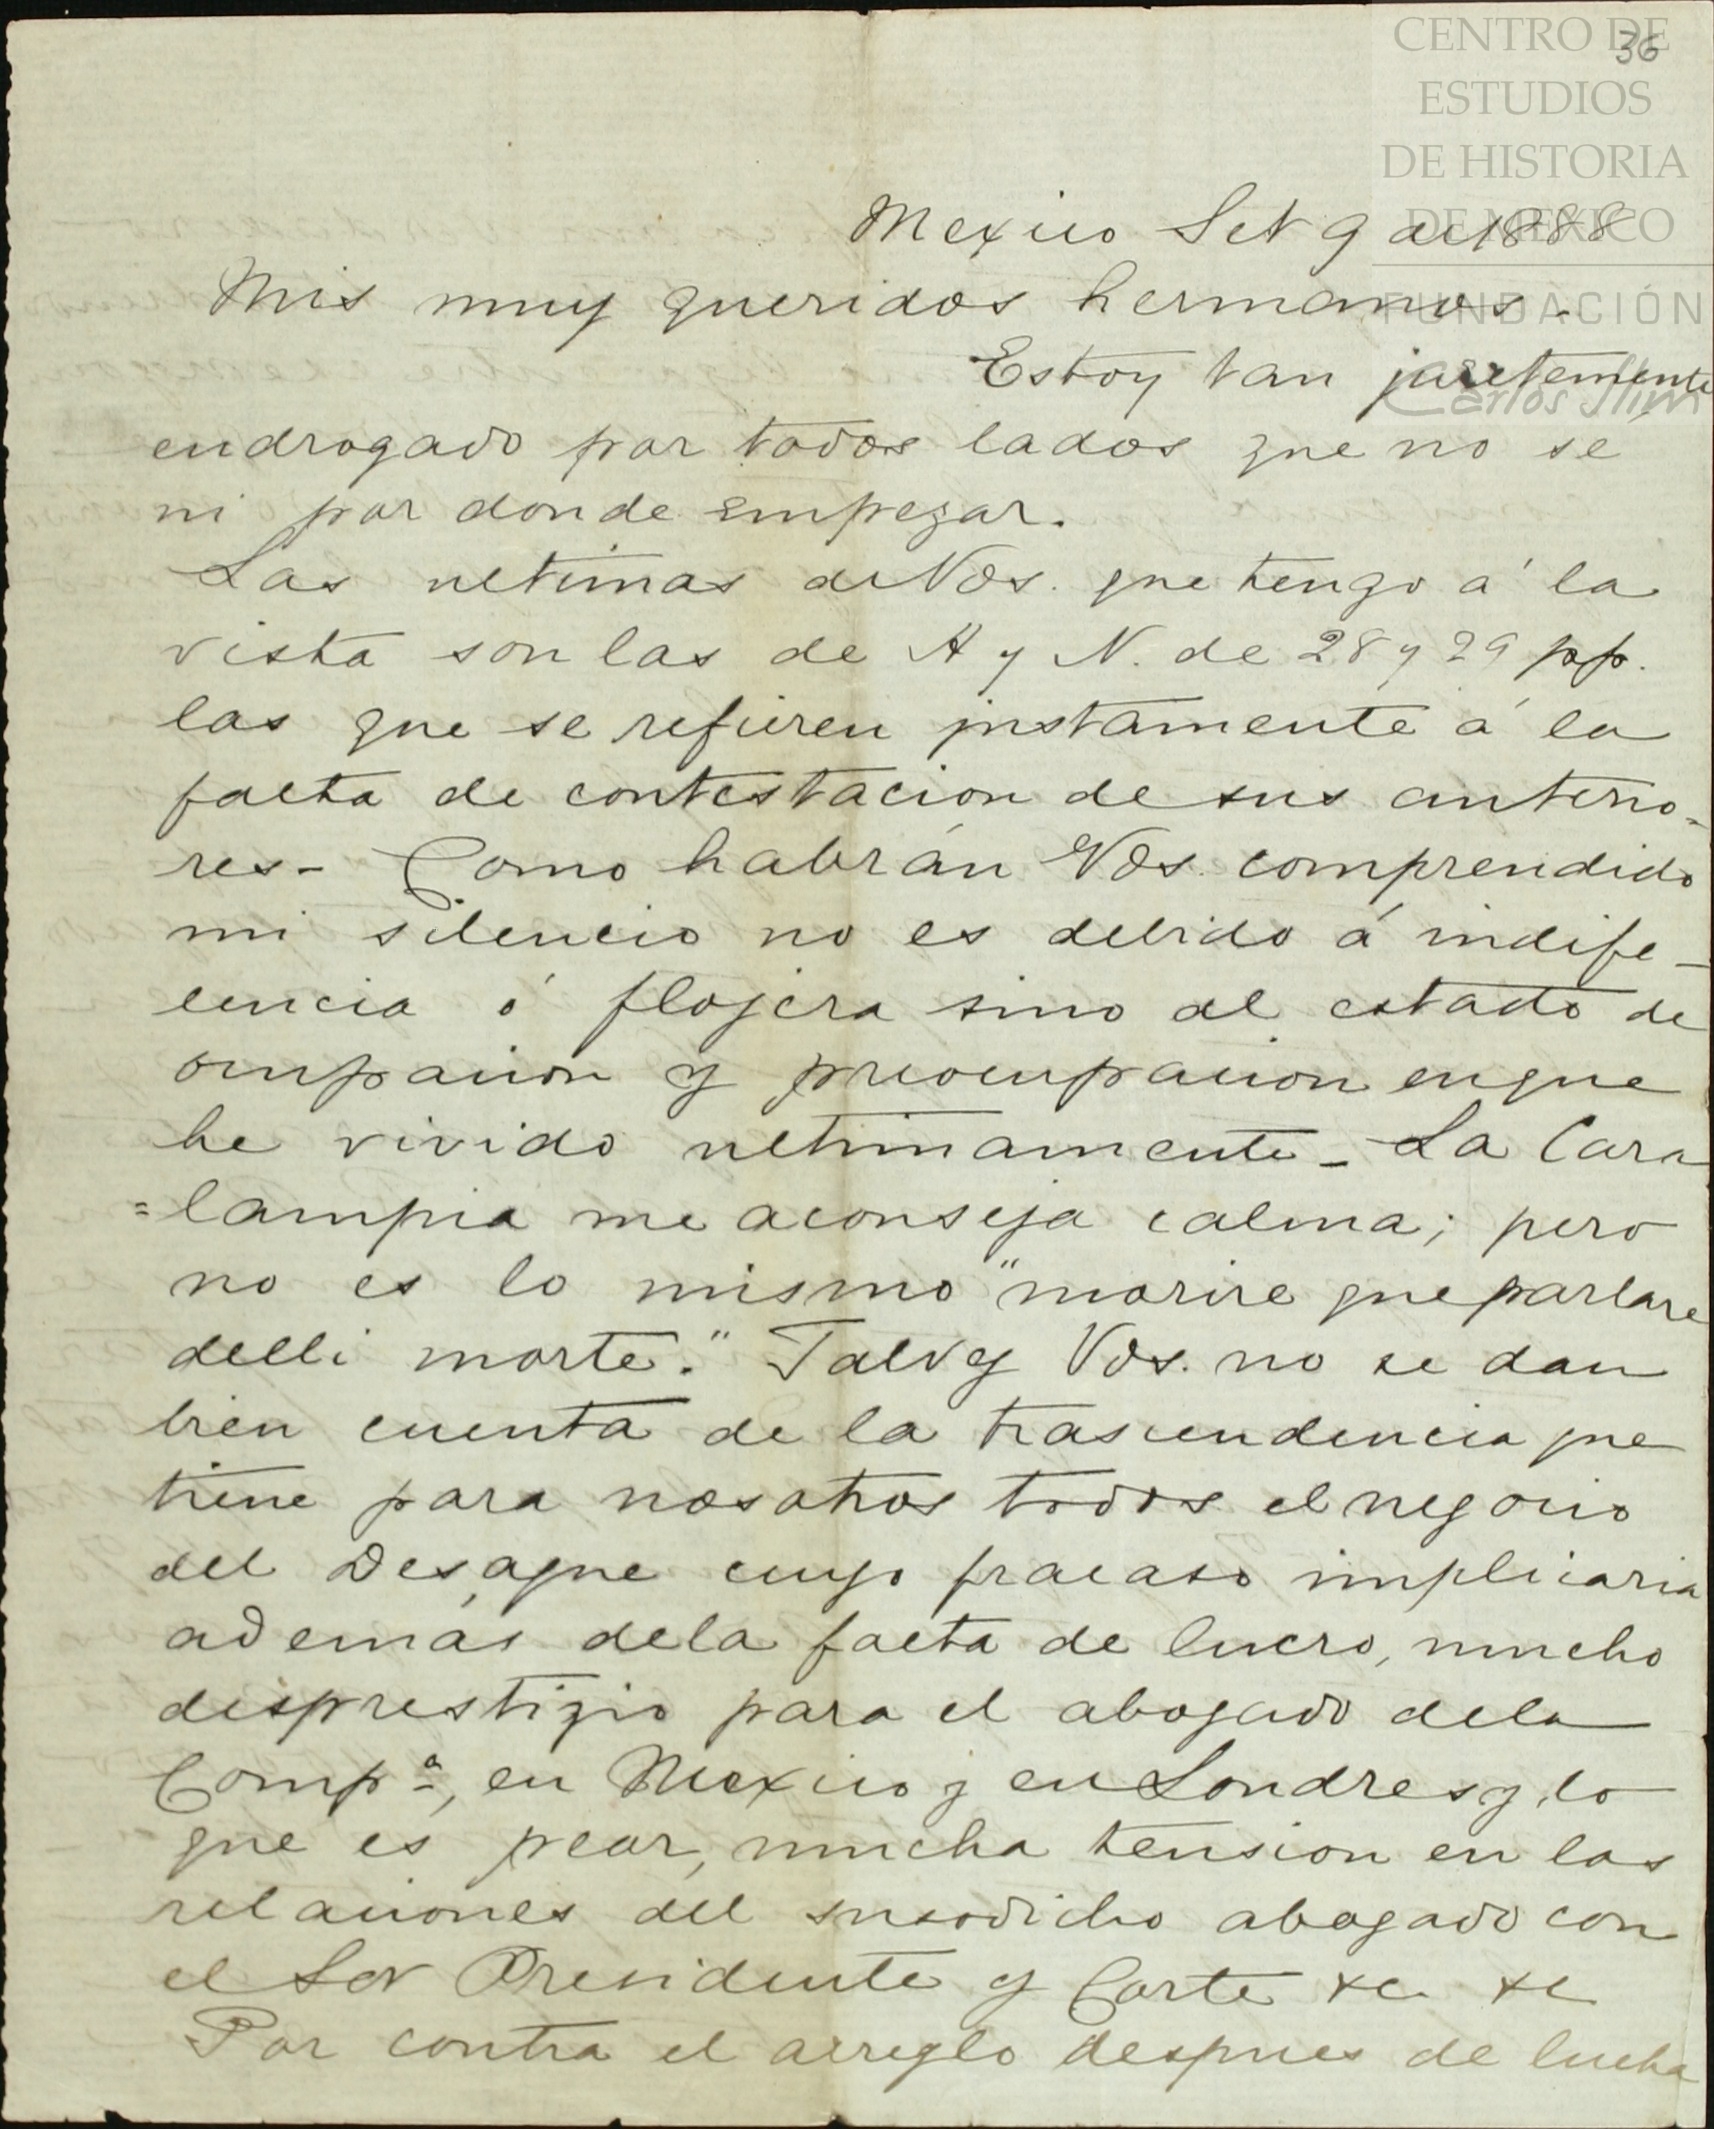 CENTRO DE
ESTUDIOS
DE HISTORIA
DE MEXICO
FUNDACIÓN
Carlos Slim
36
Mexico Set 9 de 1888
Mis muy queridos hermanos.
Estoy tan
endrogado por todos lados que no sé
ni por donde empezar.
Las ultimas de Vds. que tengo á la
vista son las de A y N. de 28 y 29 pp.
las que se refieren justamente á la
falta de contestacion de sus anterio-
res- Como habrán Vds. comprendido
mi silencio no es debido á indife-
encia ó flojera sino al estado de
ocupacion y preocupacion en que
he vivido ultimamente - La Cara
=lampia me aconseja calma; pero
no es lo mismo "morire que parlare
delli morte." Talvez Vds. no se dan
bien cuenta de la trascendencia que
tiene para nosotros todos el negocio
del Desague cuyo fracaso implicaria
ademas dela falta de lucro, mucho
desprestigio para el abogado dela
Compª, en Mexico y en Londres y, lo
que es peor, mucha tension en las
relaciones del susodicho abogado con
el Sor Presidente y Corte &c &c
Por contra el arreglo despues de lucha